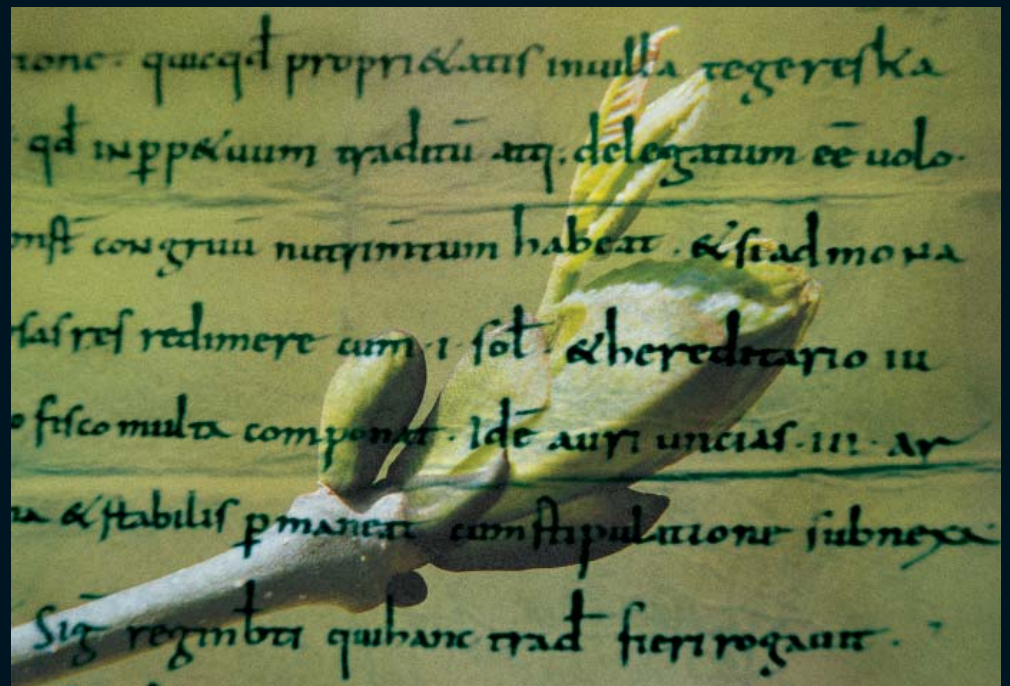 tione · quicqd̄ propri&atis inuilla tegereska
qd̄ inp̄p&uum traditū atq. delegatum eē uolo·
onst̄ congruū nutrim̄tum habeat · &si ad mo na
sas res redimere cum · i · sol̄ · &hereditario iu
o fisco multa componat · Idē auri uncias · iii · ar
na &stabilis p̄maneat cum stipulatione subnexa·
Siḡ reginb̄ti qui hanc trad̄ fieri rogauit ·